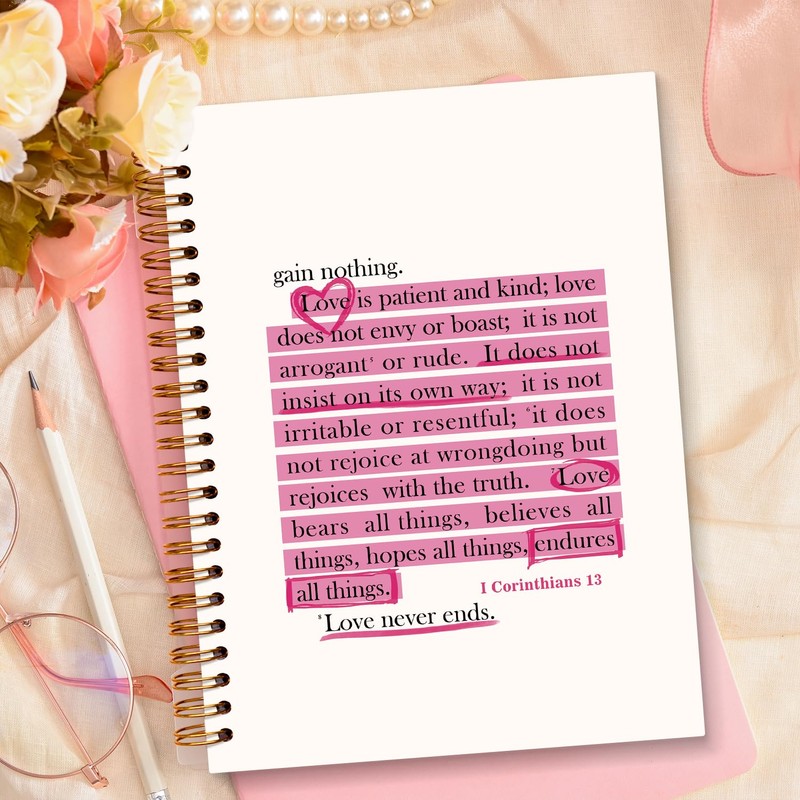 gain nothing.
Love is patient and kind; love
does not envy or boast; it is not
arrogant⁵ or rude. It does not
insist on its own way; it is not
irritable or resentful; ⁶it does
not rejoice at wrongdoing but
rejoices with the truth. ⁷Love
bears all things, believes all
things, hopes all things, endures
all things.
I Corinthians 13
⁸Love never ends.